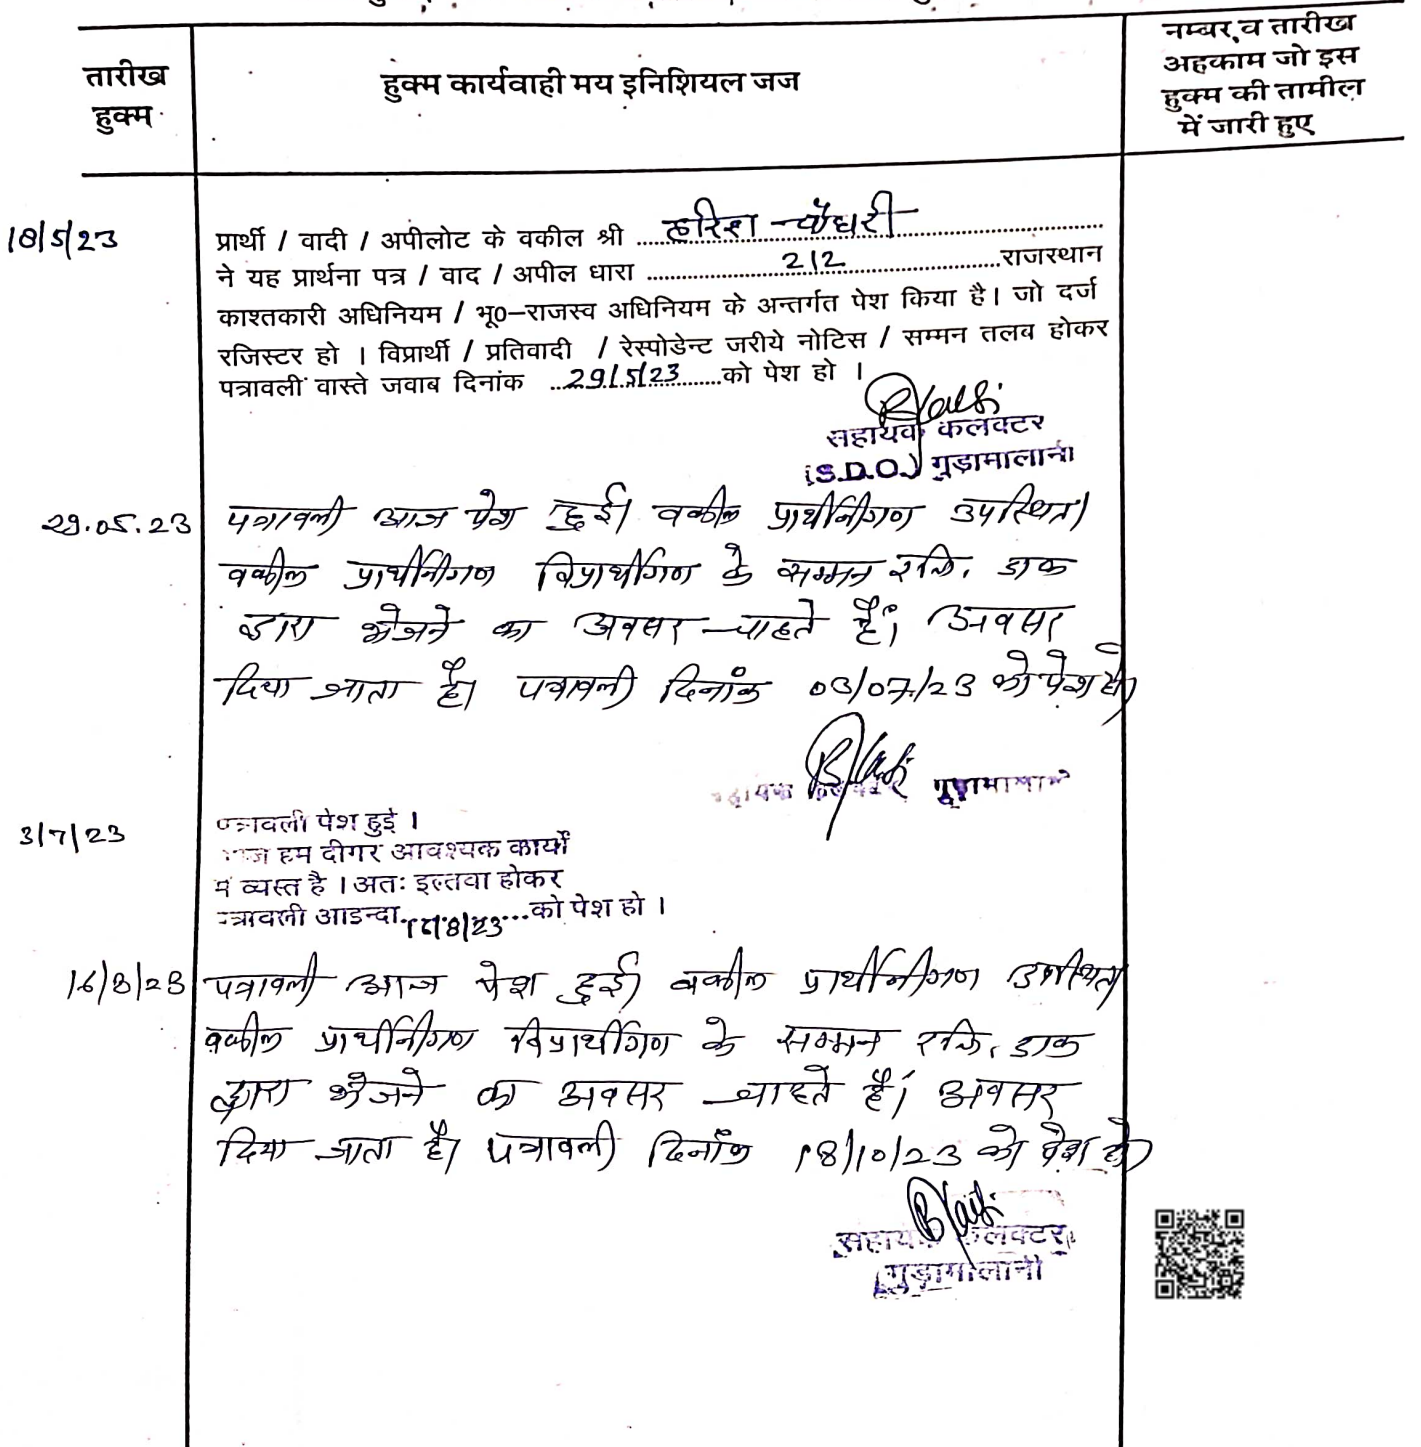 तारीख
हुक्म
हुक्म कार्यवाही मय इनिशियल जज
नम्बर व तारीख
अहकाम जो इस
हुक्म की तामील
में जारी हुए
18/5/23
प्रार्थी / वादी / अपीलोट के वकील श्री ....हरिश चौधरी....
ने यह प्रार्थना पत्र / वाद / अपील धारा ....212....राजस्थान
काश्तकारी अधिनियम / भू०–राजस्व अधिनियम के अन्तर्गत पेश किया है। जो दर्ज
रजिस्टर हो । विप्रार्थी / प्रतिवादी / रेस्पोडेन्ट जरीये नोटिस / सम्मन तलब होकर
पत्रावली वास्ते जवाब दिनांक ...29/5/23......को पेश हो ।
सहायक कलक्टर
(S.D.O.) गुड़ामालानी
29.05.23 पत्रावली आज पेश हुई। वकील प्रार्थीनीगण उपस्थित।
वकील प्रार्थीनीगण विप्रार्थीगण के सम्मन रजि. डाक
द्वारा भेजने का अवसर चाहते हैं। अवसर
दिया जाता है। पत्रावली दिनांक 03/07/23 को पेश हो।
सहायक कलक्टर गुड़ामालानी
3/7/23 पत्रावली पेश हुई ।
आज हम दीगर आवश्यक कार्यों
में व्यस्त है । अतः इल्तवा होकर
पत्रावली आइन्दा....8/23....को पेश हो ।
16/8/23 पत्रावली आज पेश हुई। वकील प्रार्थीनीगण उपस्थित।
वकील प्रार्थीनीगण विप्रार्थीगण के सम्मन रजि. डाक
द्वारा भेजने का अवसर चाहते हैं। अवसर
दिया जाता है। पत्रावली दिनाँक 18/10/23 को पेश हो।
सहायक कलक्टर
गुड़ामालानी